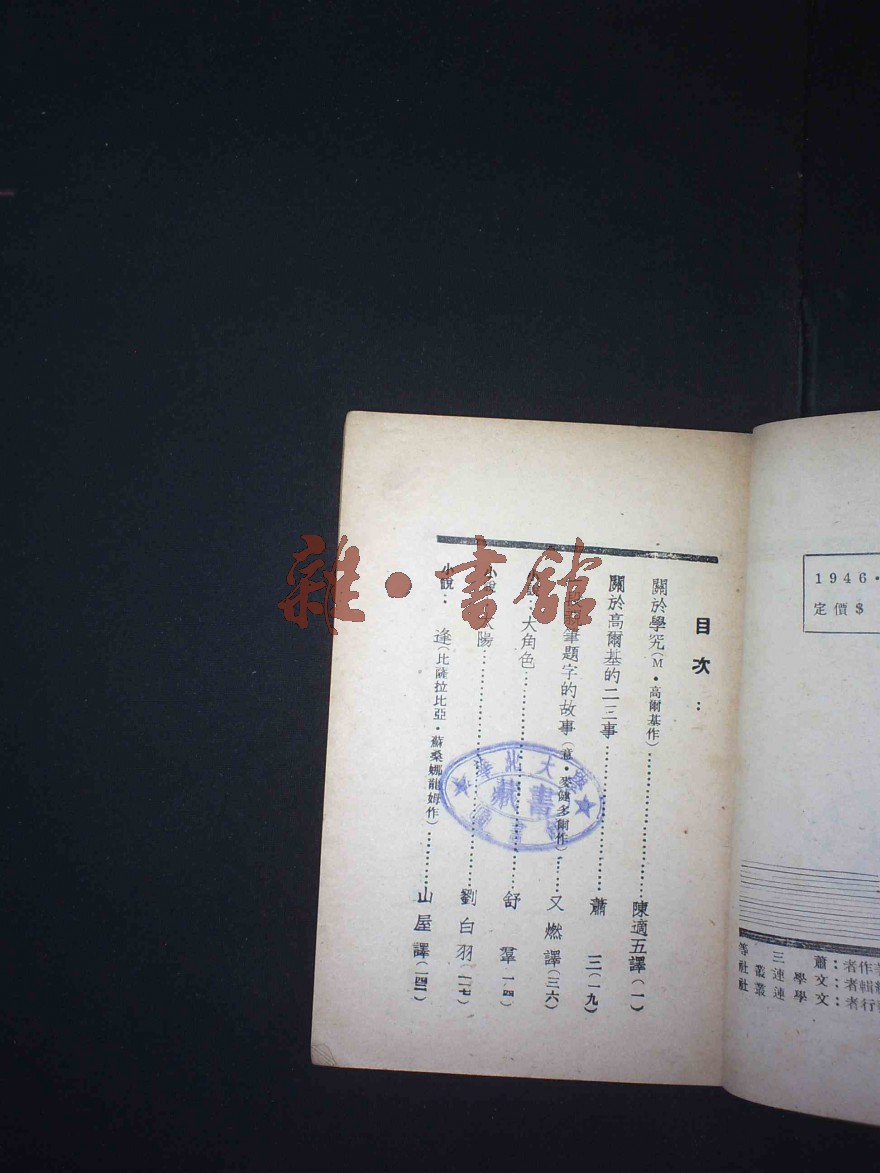 目次：
關於學究(M·高爾基作)………陳適五譯(一)
關於高爾基的二三事………蕭三(一九)
筆題字的故事(意·麥健多爾作)……又燃譯(三六)
小說：大角色………舒羣
小說 陽………劉白羽
小說：逢(比薩拉比亞·蘇桑娜龍姆作)………山屋譯
華北大學
藏書
雜·書館
1946·
定價$
作者：蕭三等
輯者：文學連叢社
行者：文學連叢社